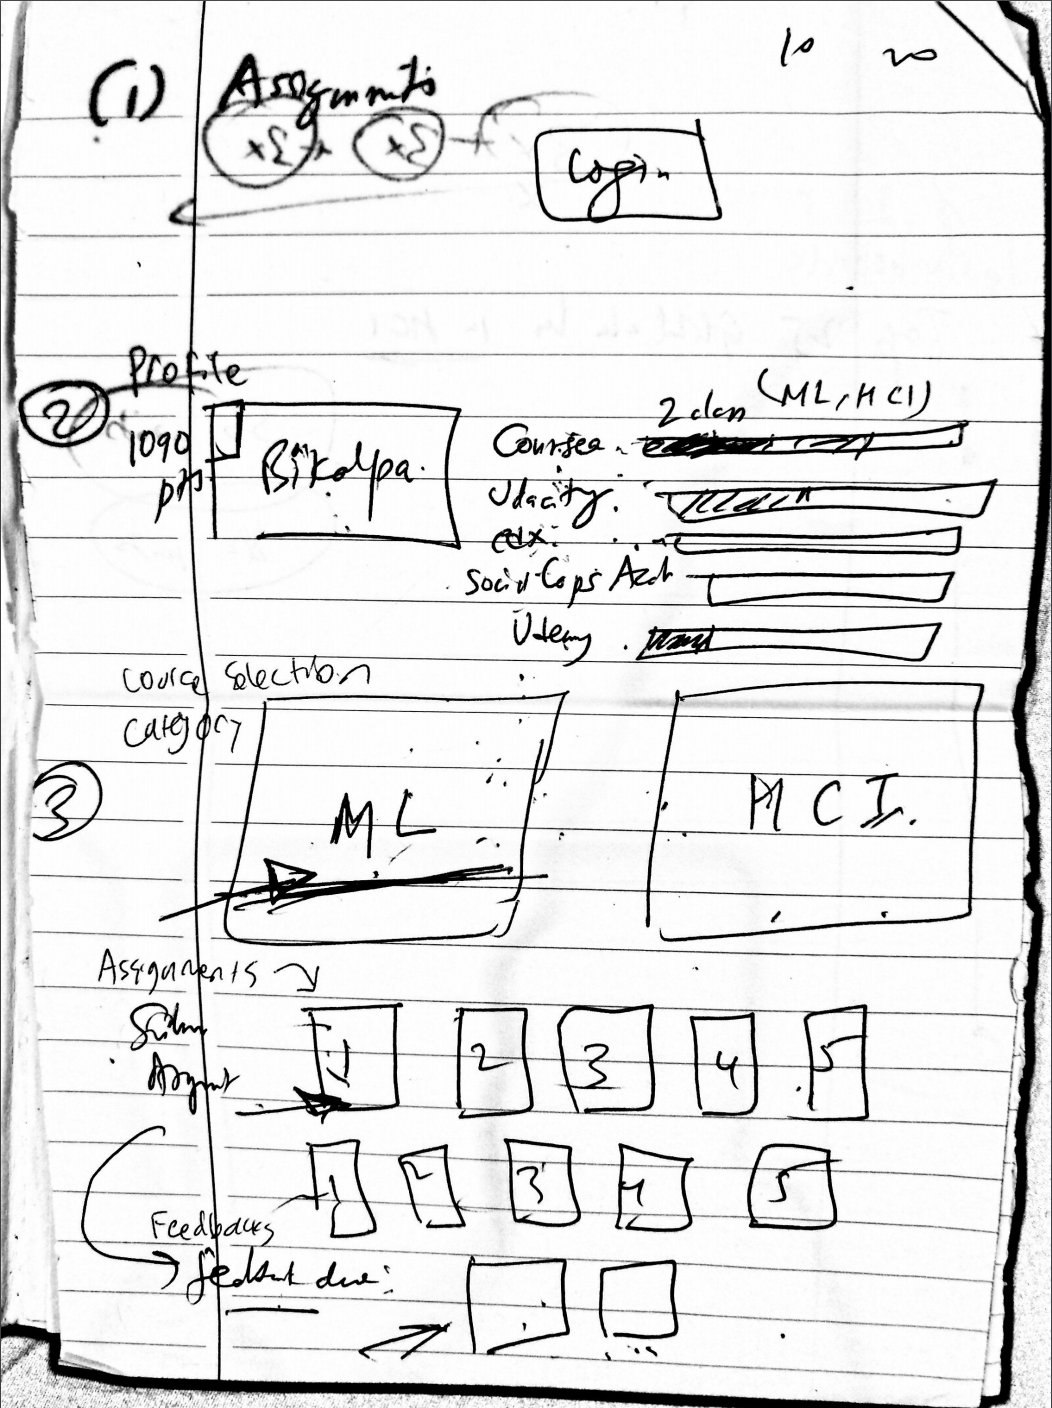 10 20
(1) Assignments
Login
Profile
2
1090
pts
Bikalpa.
2 class (ML, HCI)
Coursea
Udacity.
edx.
Social Cops
Udemy
Course Selection
Category
3
ML
HCI.
Assignments
1 2 3 4 5
1 2 3 4 5
Feedbacks
feedback due: